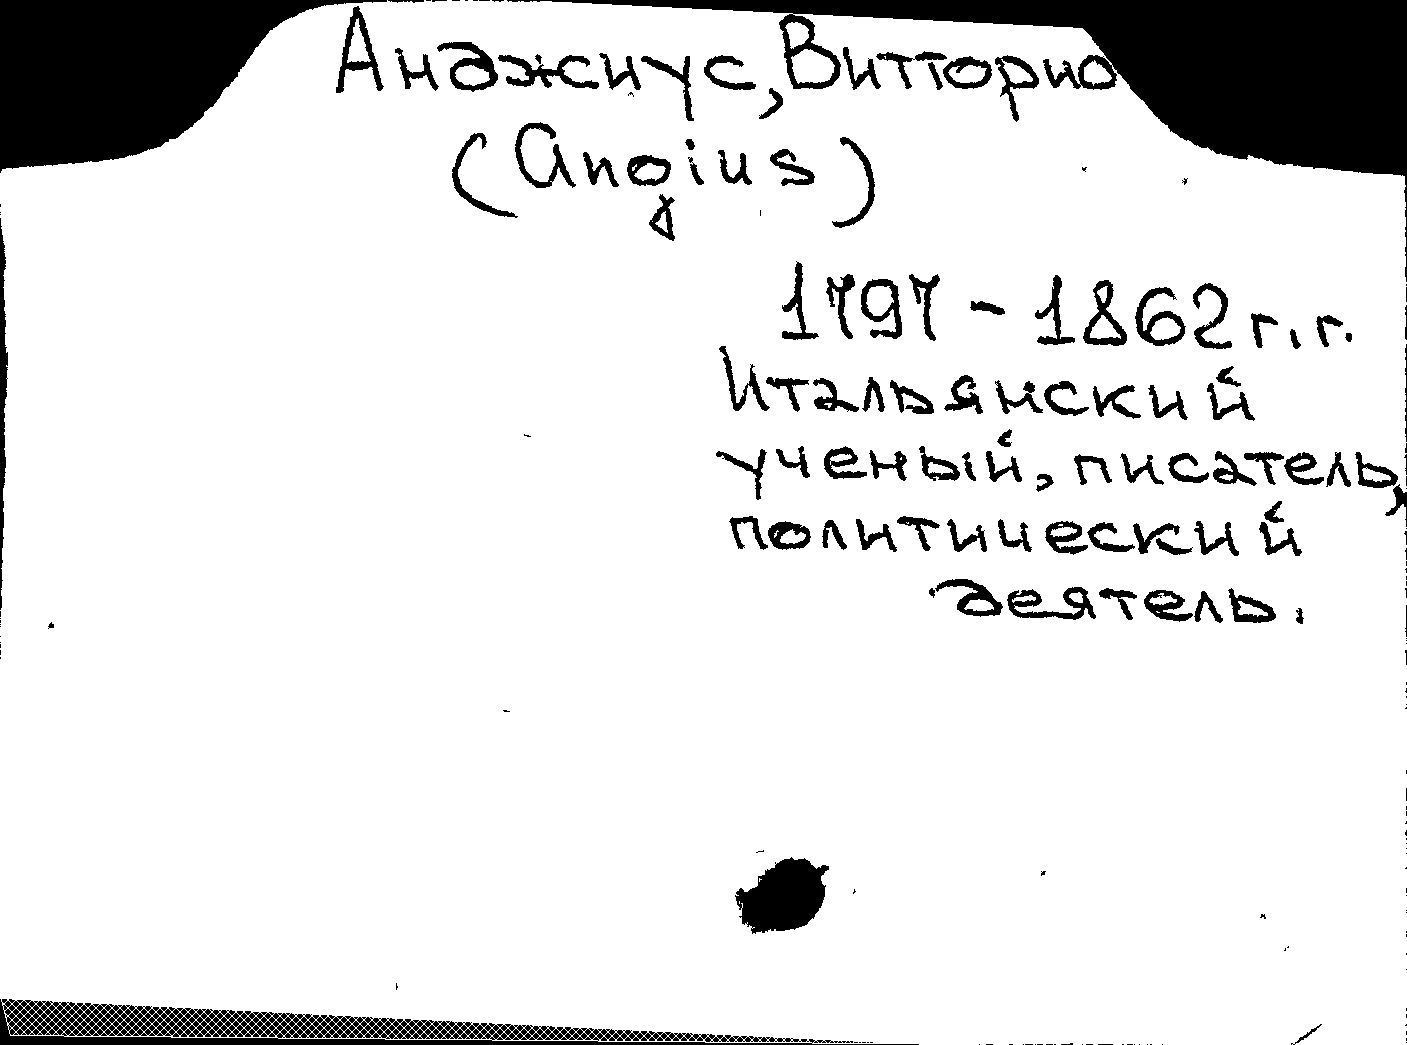 Анджиус, Витторио
(Angius)
1797 - 1862 г.г.
Итальянский
ученый, писатель,
политический
деятель.